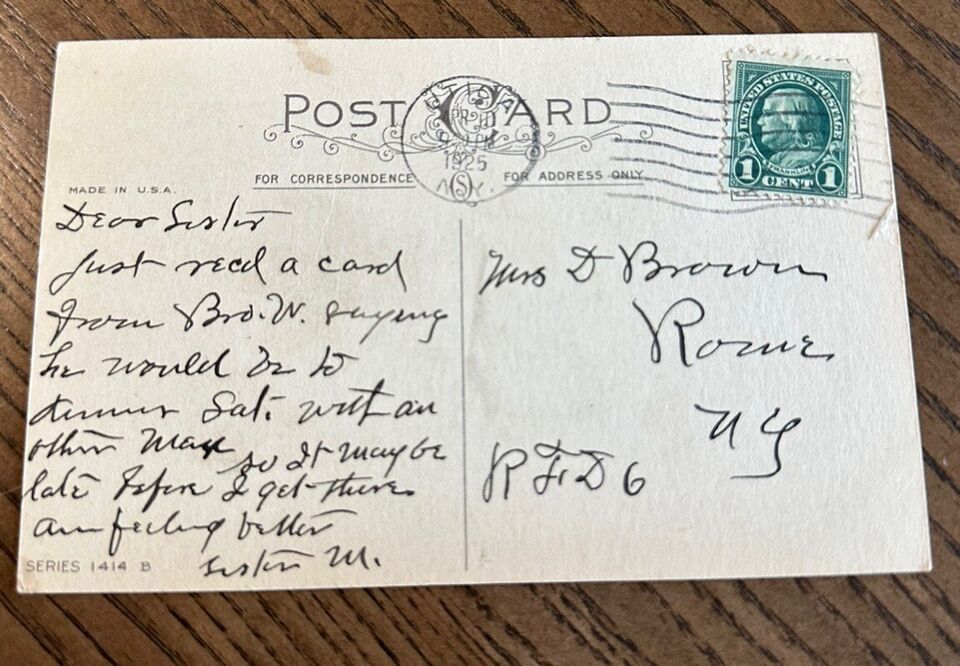 POST CARD
UTICA
APR 10
9 PM
1925
N.Y.
(S)
UNITED STATES POSTAGE
FRANKLIN
1 CENT 1
FOR CORRESPONDENCE
FOR ADDRESS ONLY
MADE IN U.S.A.
Dear Sister
Just recd a card
from Bro. W. saying
he would be to
dinner Sat. with an
other Man so It may be
late before I get there
am feeling better
Sister M.
SERIES 1414 B
Mrs D Brown
Rome
N Y
R F D 6